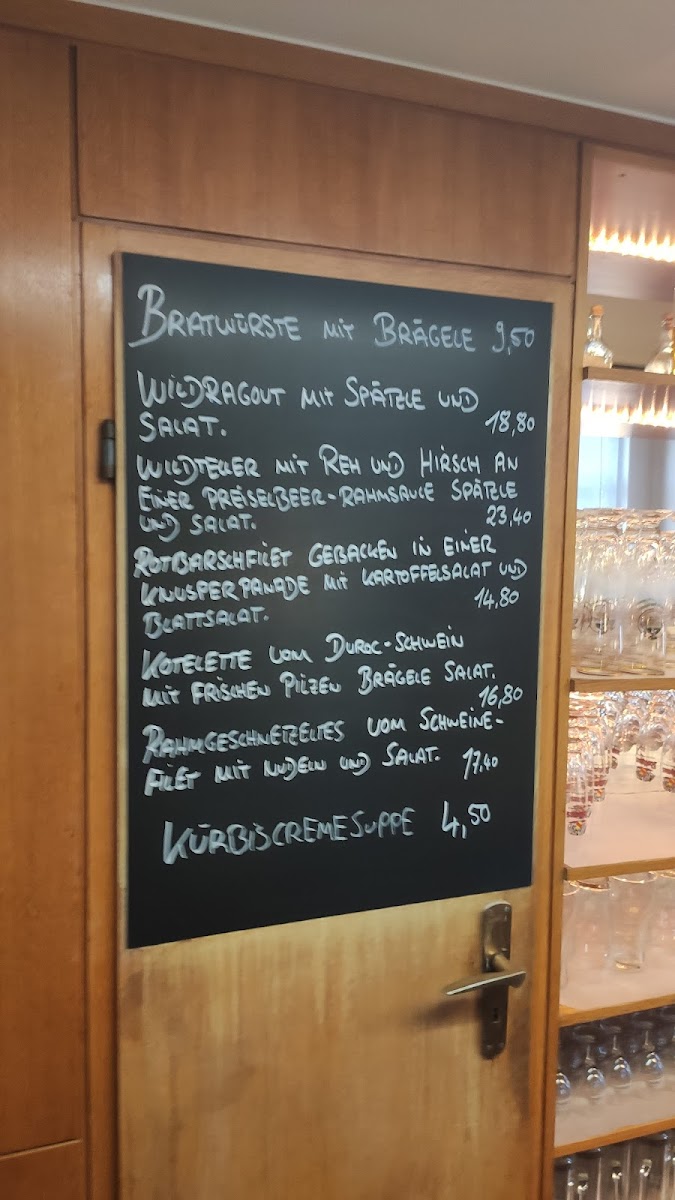 BRATWÜRSTE MIT BRÄGELE 9,50
WILDRAGOUT MIT SPÄTZLE UND
SALAT. 18,80
WILDTELLER MIT REH UND HIRSCH AN
EINER PREISELBEER-RAHMSAUCE SPÄTZLE
UND SALAT. 23,40
ROTBARSCHFILET GEBACKEN IN EINER
KNUSPERPANADE MIT KARTOFFELSALAT UND
BLATTSALAT. 14,80
KOTELETTE VOM DUROC-SCHWEIN
MIT FRISCHEN PILZEN BRÄGELE SALAT.
16,80
RAHMGESCHNETZELTES VOM SCHWEINE-
FILET MIT NUDELN UND SALAT. 17,40
KÜRBISCREMESUPPE 4,50